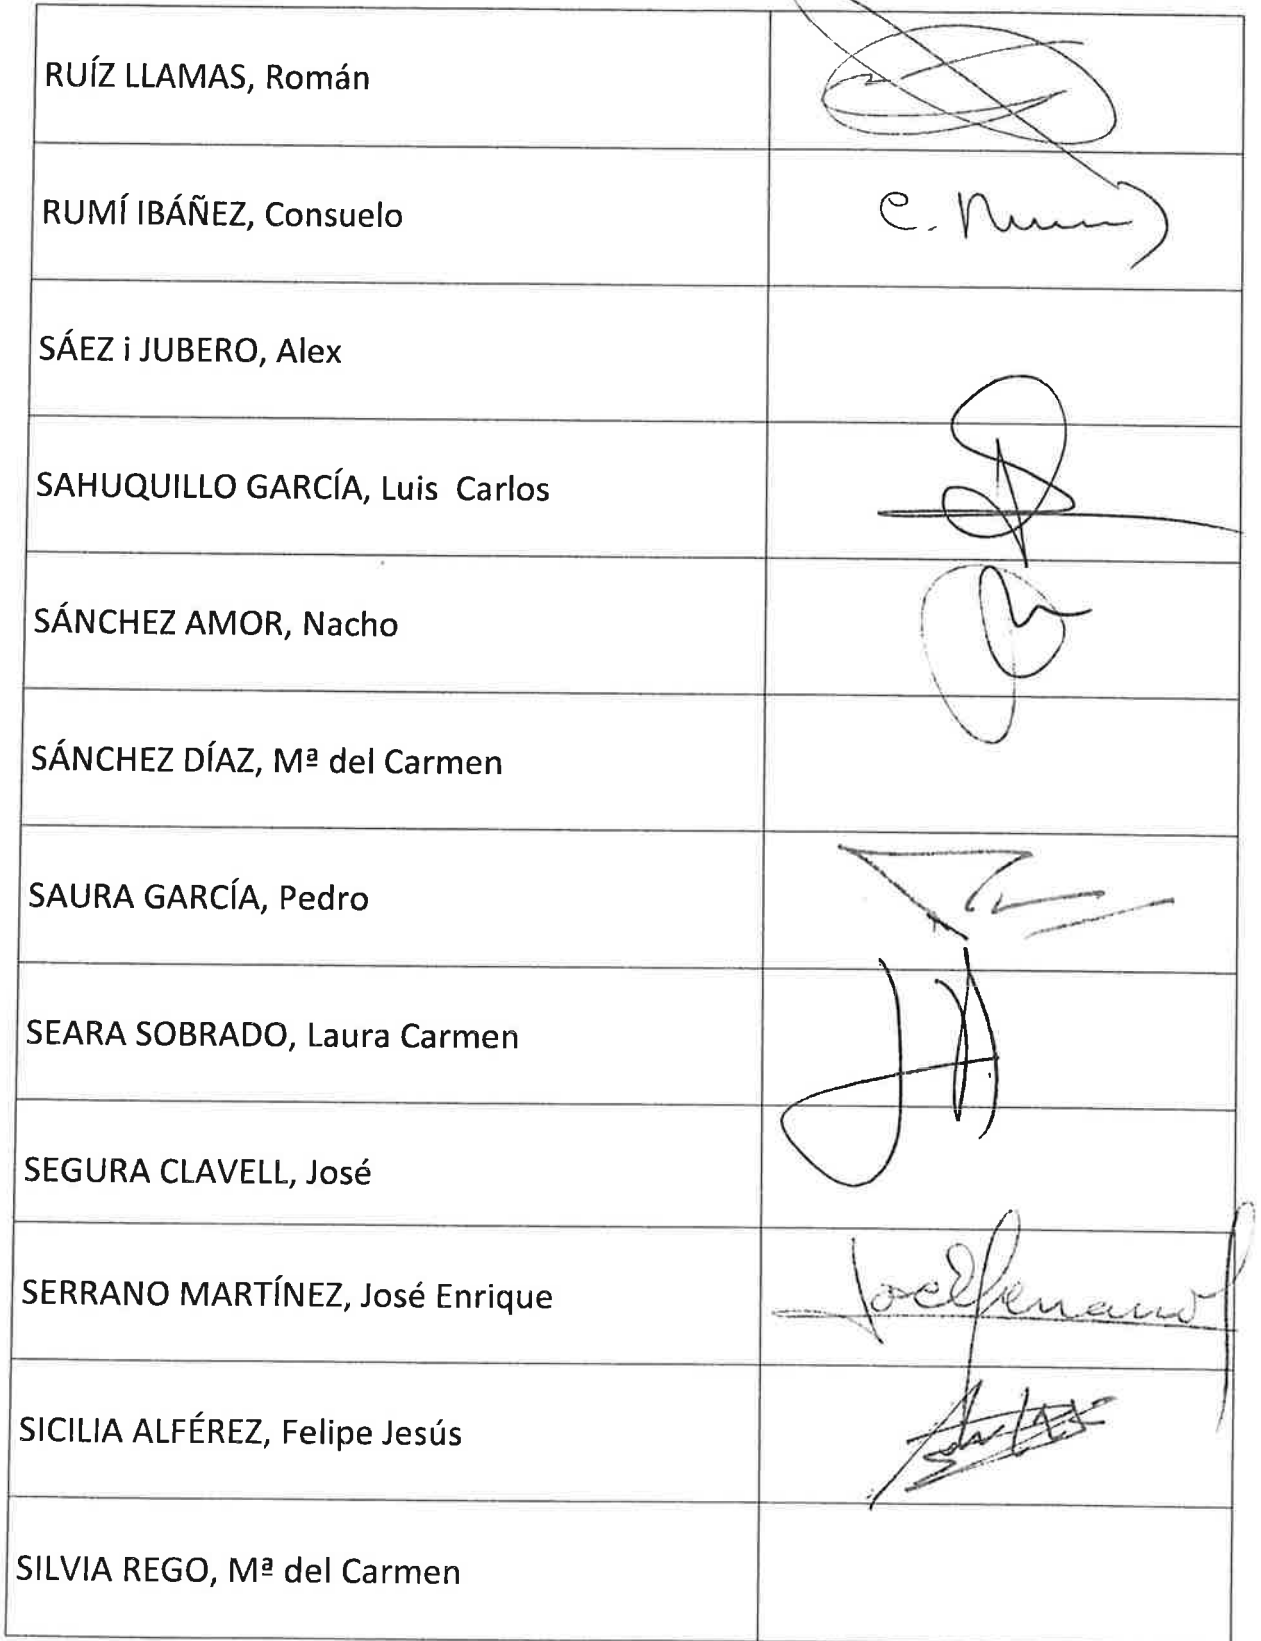 RUÍZ LLAMAS, Román
RUMÍ IBÁÑEZ, Consuelo
C. Rumí
SÁEZ i JUBERO, Alex
SAHUQUILLO GARCÍA, Luis Carlos
SÁNCHEZ AMOR, Nacho
SÁNCHEZ DÍAZ, Mª del Carmen
SAURA GARCÍA, Pedro
SEARA SOBRADO, Laura Carmen
SEGURA CLAVELL, José
SERRANO MARTÍNEZ, José Enrique
SICILIA ALFÉREZ, Felipe Jesús
SILVIA REGO, Mª del Carmen